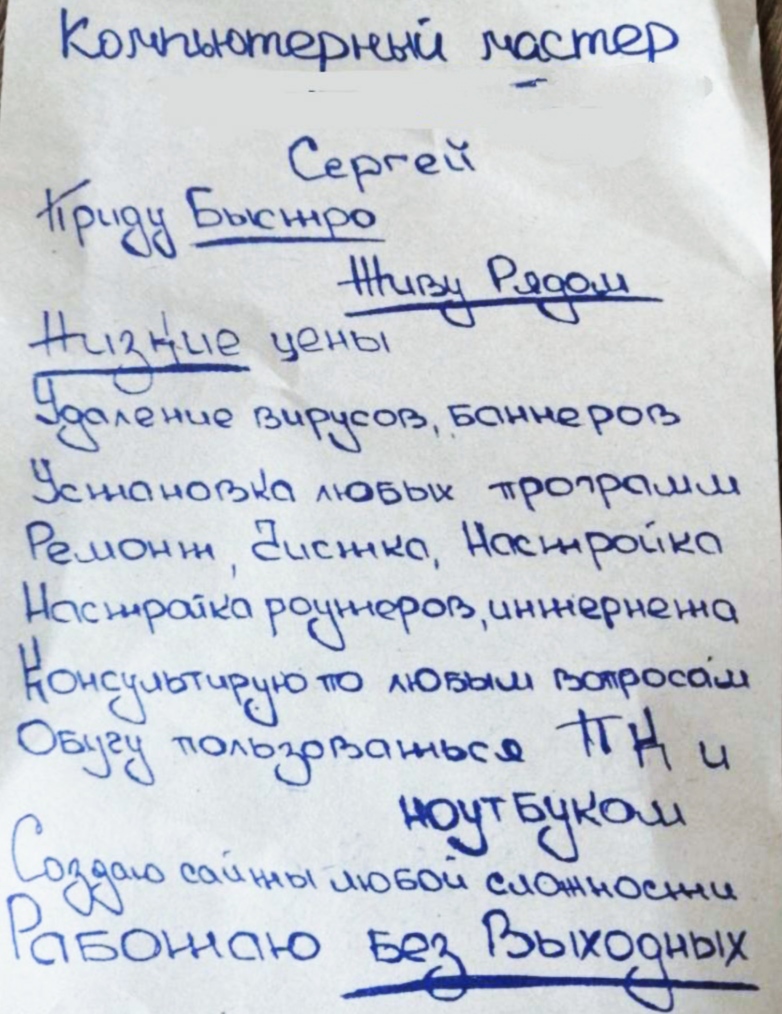 Компьютерный мастер
Сергей
Приду Быстро
Живу Рядом
Низкие цены
Удаление вирусов, баннеров
Установка любых программ
Ремонт, Чистка, Настройка
Настройка роутеров, интернета
Консультирую по любым вопросам
Обучу пользоваться ПК и
ноутбуком
Создаю сайты любой сложности
Работаю без Выходных